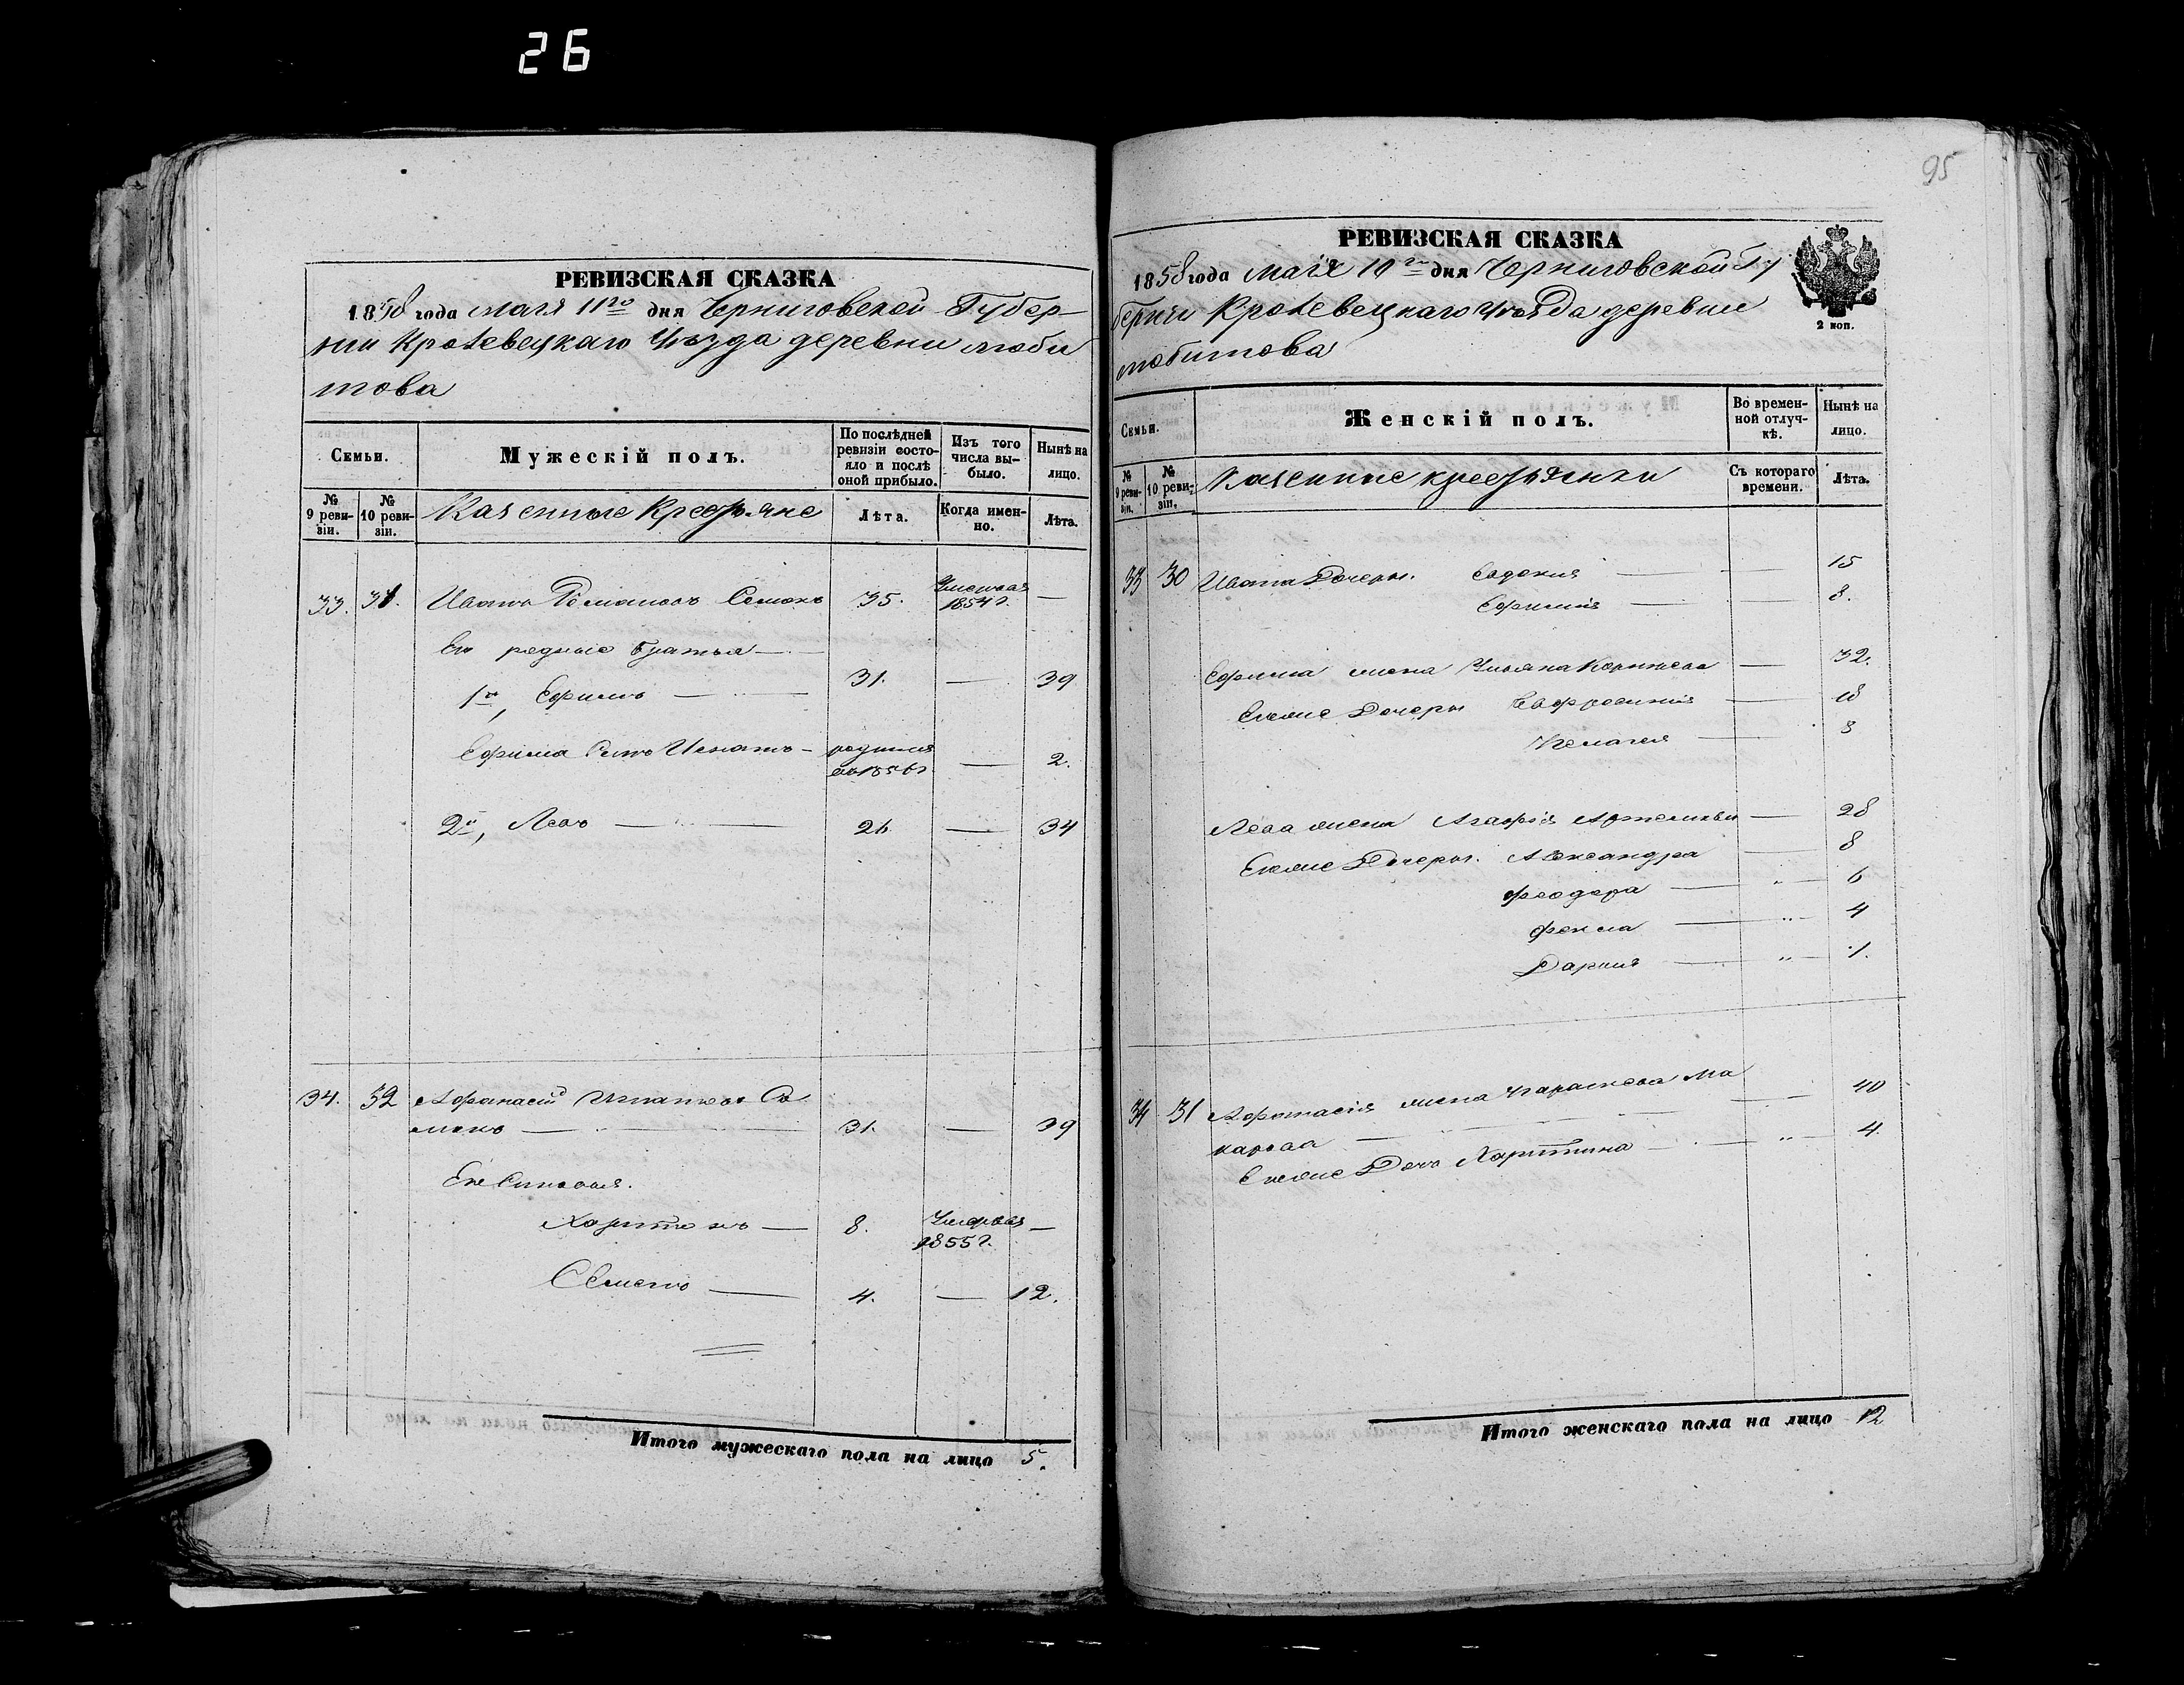 26
95
РЕВИЗСКАЯ СКАЗКА
1858 года мая 11го дня Черниговской Губер-
нии Кролевецкаго Уъзда деревни люби
това
Семьи.
Мужескій полъ.
По послѣдней ревизіи состо-яло и послѣ оной прибыло.
Изъ того числа вы-было.
Нынѣ на лицо.
№ 9 реви-зіи.
№ 10 реви-зіи.
Казенные Крестьяне
Лѣта.
Когда имен-но.
Лѣта.
33. 31. Иванъ Романовъ 35. Умершая 1854 г. —
Ею родные братья —
1й, Ефимъ — 31. — 39
Ефима Сынъ Игнатъ — родился въ 1856 г — 2.
2й, Левъ — 26 — 34
34. 32 Афанасій Игнатовъ Се
менъ — 31. — 39
Ею Сыновья.
Харитонъ — 8. Умеръ 1855 г. —
Семенъ — 4. — 12.
Итого мужескаго пола на лицо 5.
РЕВИЗСКАЯ СКАЗКА
1858 года мая 10го дня Черниговской Гу
берніи Кролевецкаго Уъзда деревни
любитова
2 коп.
Семьи.
Женскій полъ.
Во времен-ной отлуч-кѣ.
Нынѣ на лицо.
№ 9 реви-зіи.
№ 10 реви-зіи.
Казенные крестьянки
Съ котораго времени.
Лѣта.
33 30 Ивана Дочеры. Евдокия — — 15
Ефимия — — 8.
Ефима жена Ульяна — 32.
Дочеры Евфросиния — 18
Пелагея — 3
Лева жена Агафія — 28
Дочеры. Александра — 8
Феодора — " — 6
Фекла — " — 4
Дария — " — 1.
34 31 Афанасія жена Параскева Ма
карова — — 40
Дочь Харитина — " — 4.
Итого женскаго пола на лицо 12